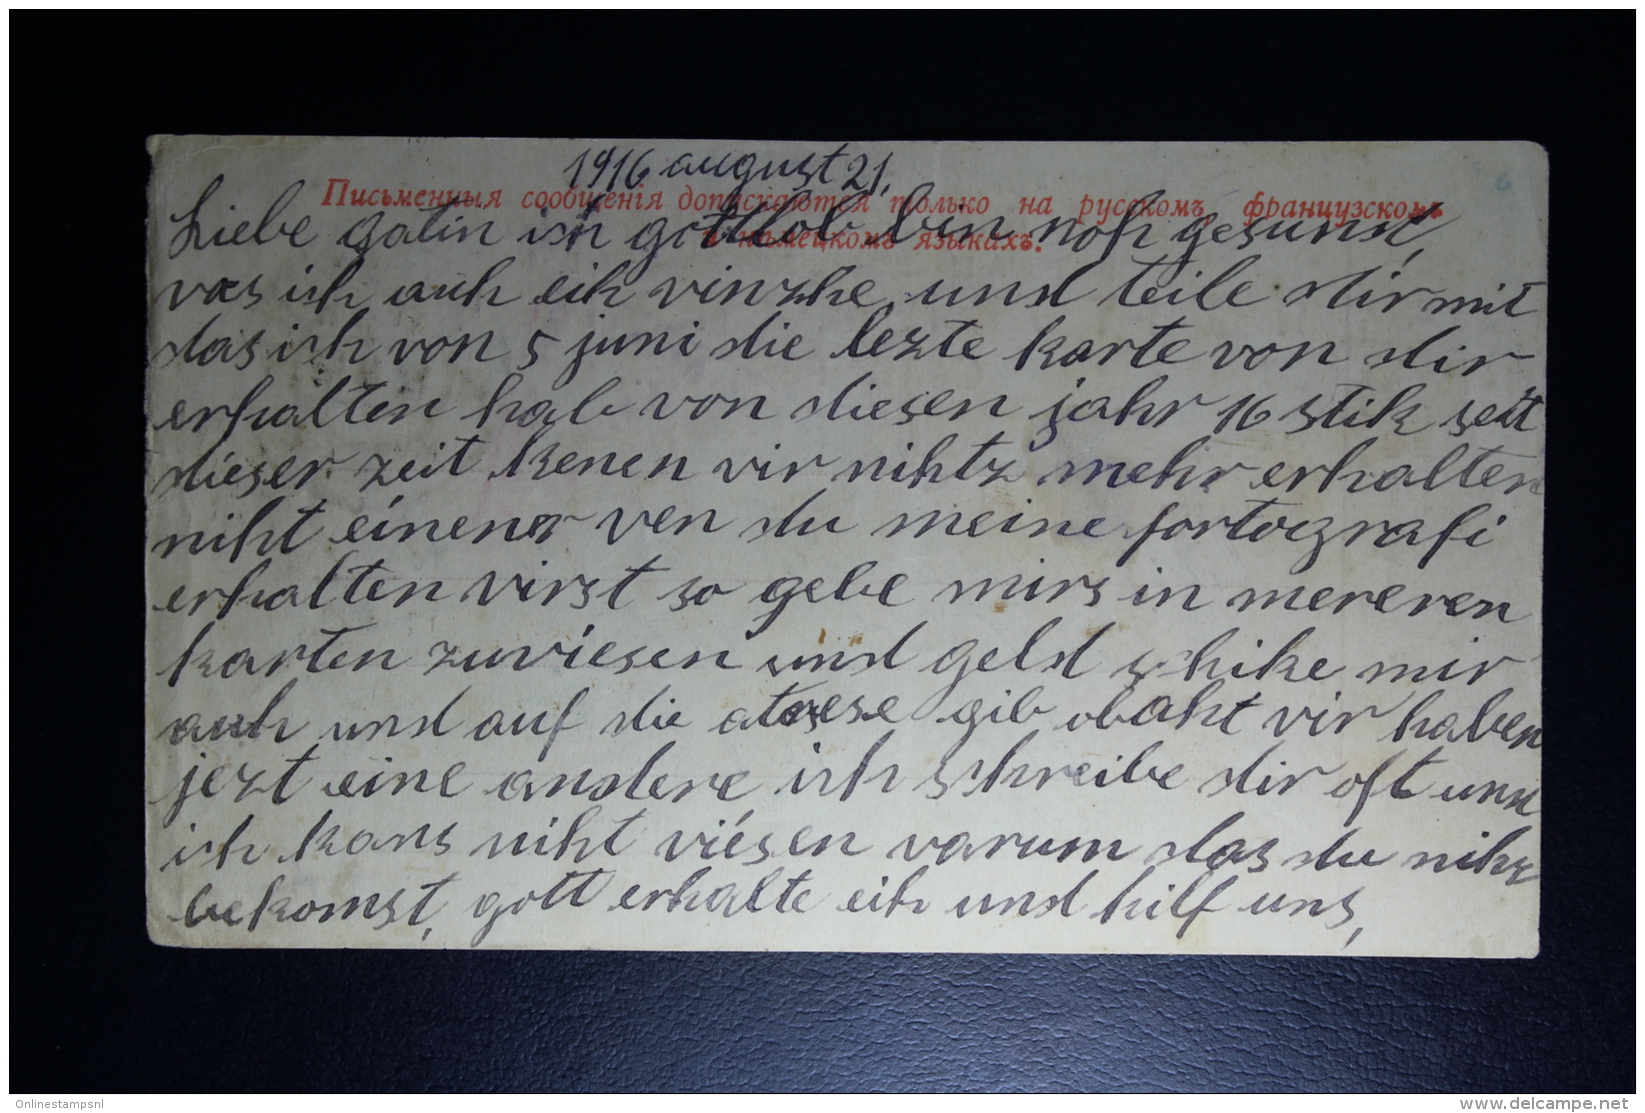 1916 august 21,
Письменныя сообщенія допускаются только на русскомъ, французскомъ
и нѣмецкомъ языкахъ.
Liebe gatin ich gottlob bin noh gesund,
vas ich auh eih vinzhe, und teile dir mit
das ich von 5 juni die lezte karte von dir
erhalten hab von diesen jahr 16 stik seit
dieser zeit kenen vir nihtz mehr erhalten
niht einener ven du meine fortografi
erhalten virst so gebe mirs in mereren
karten zuviesen und geld schike mir
auh und auf die adrese gib obaht vir haben
jezt eine andere ich schreibe dir oft und
ich kans niht viésen varum das du nihz
bekomst, gott erhalte eih und hilf uns,
Onlinestampsnl
www.delcampe.net